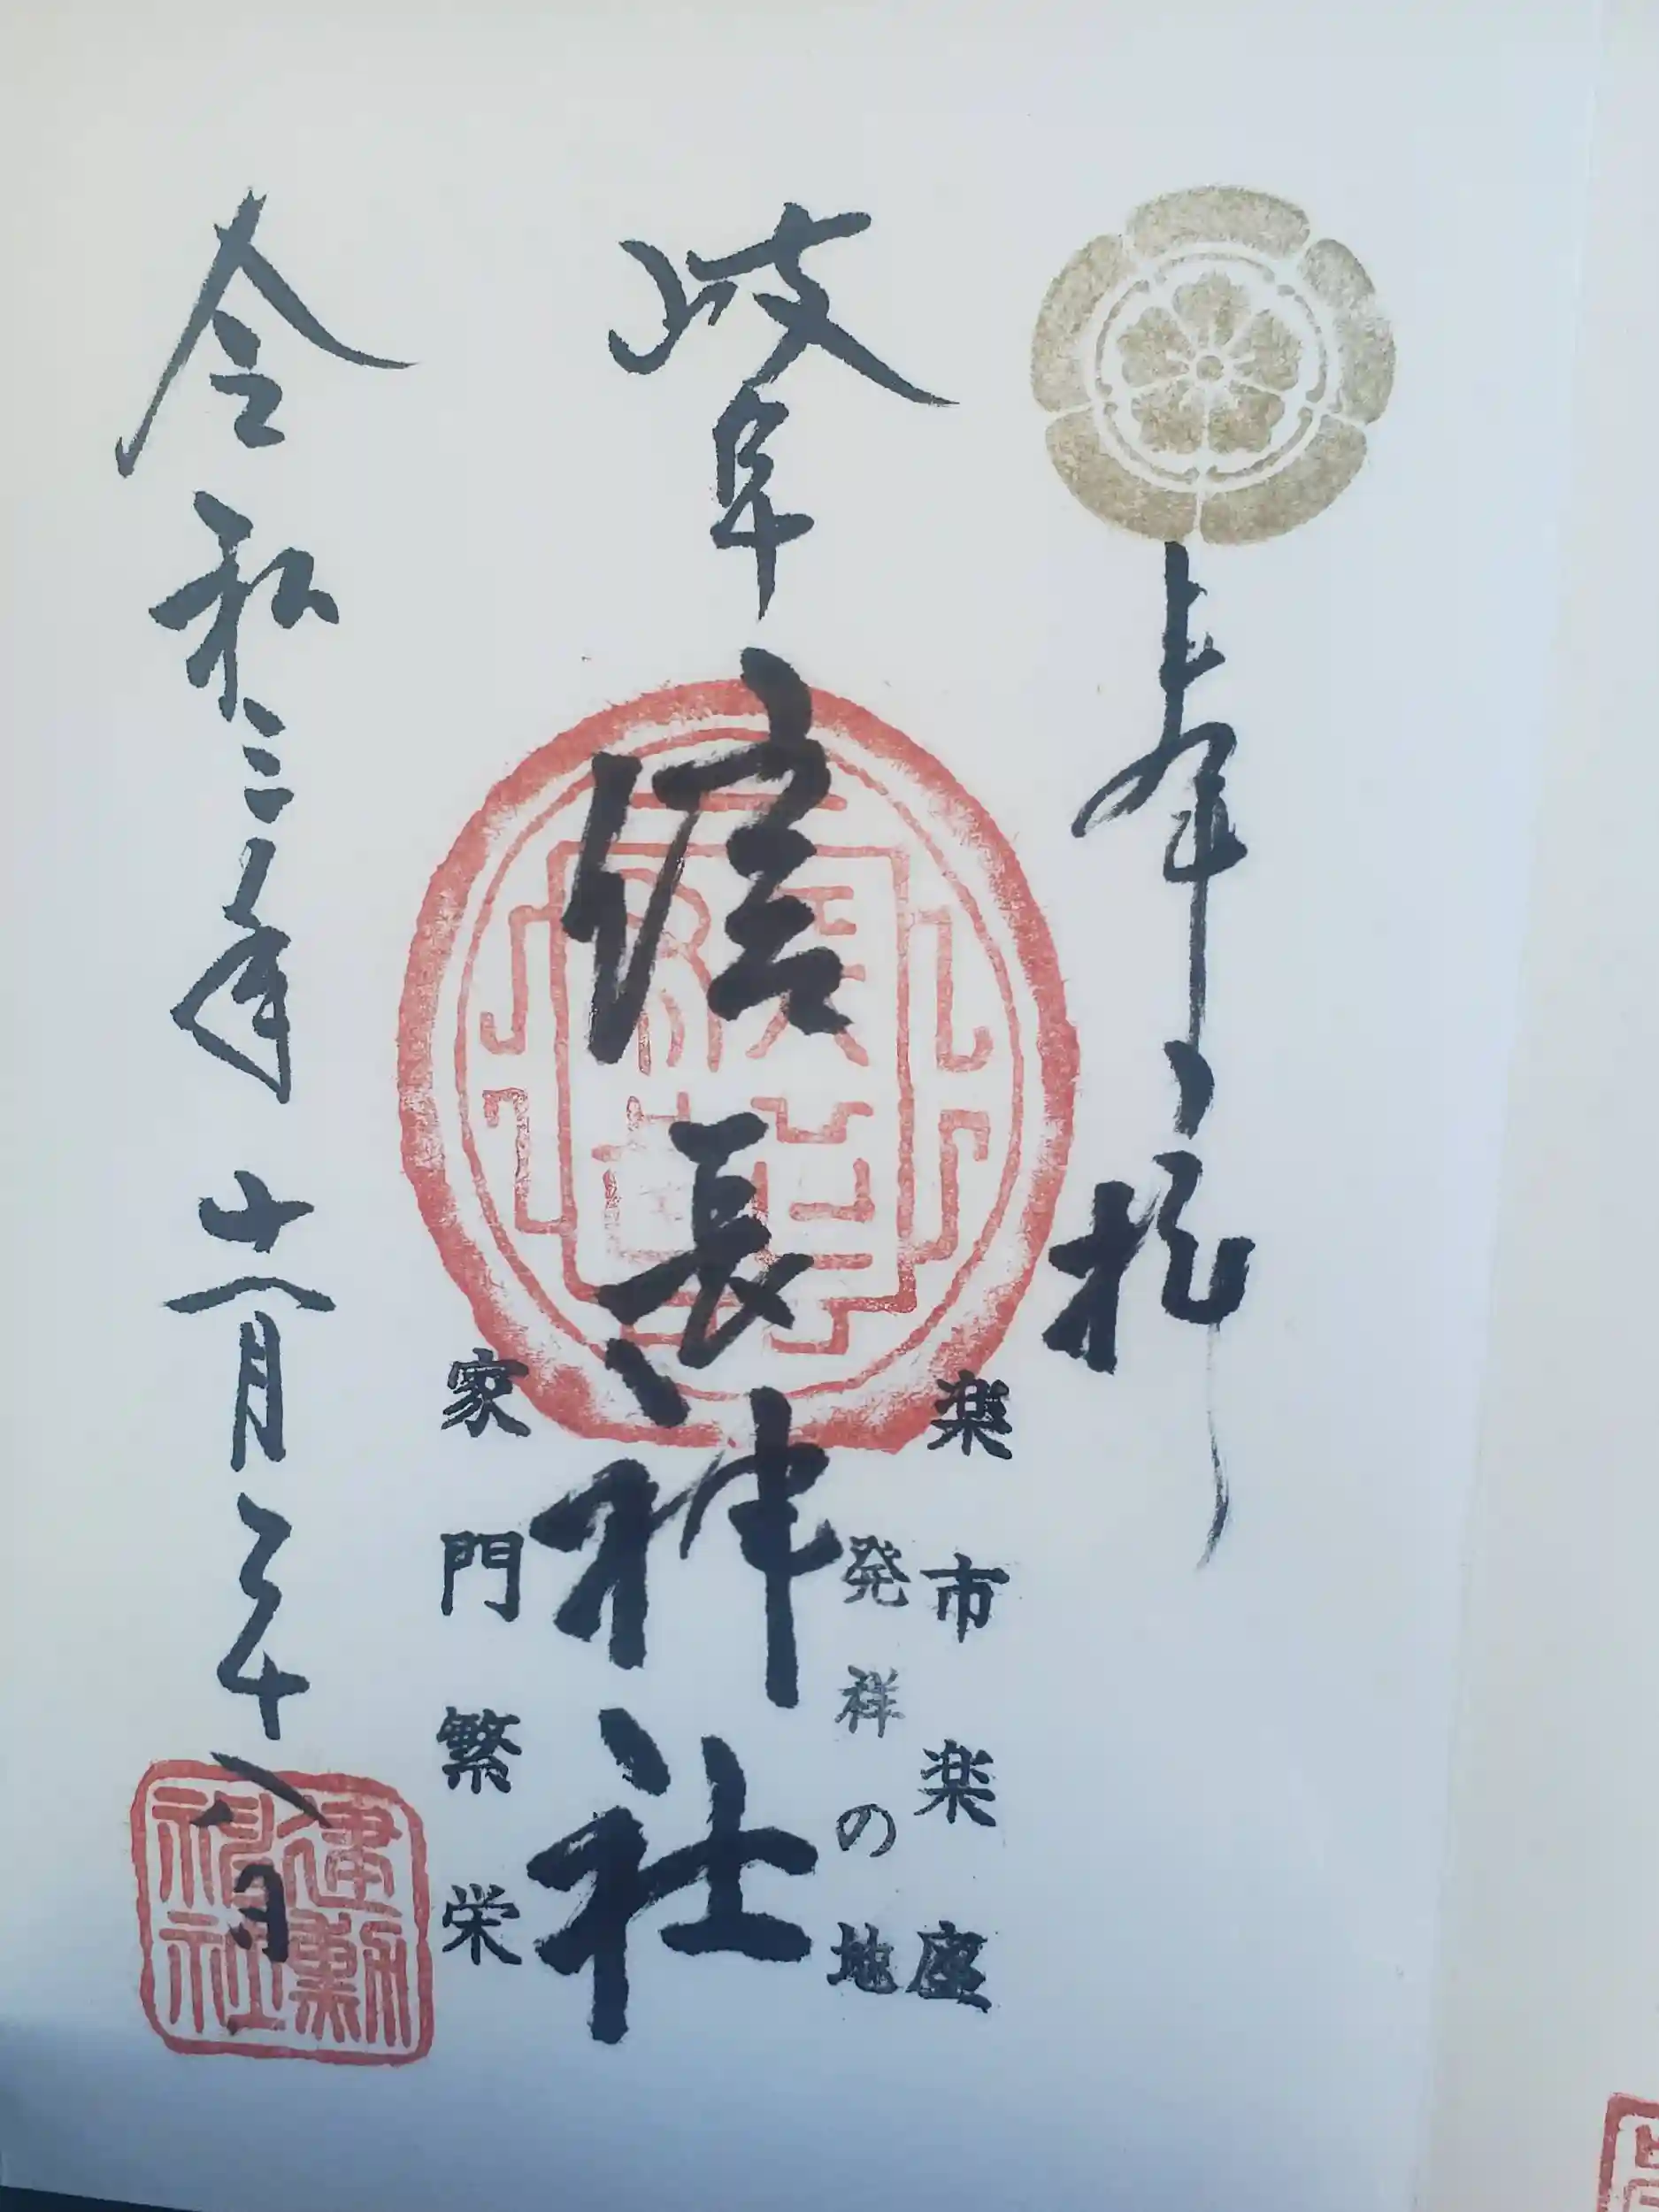 奉拝
楽市楽座
発祥の地
岐阜信長神社
家門繁栄
令和三年十一月二十八日
建勲神社